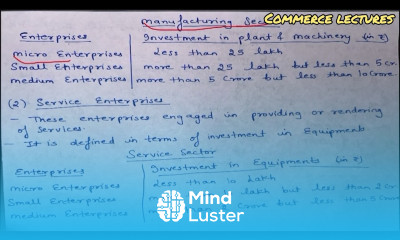 manufacturing Sec
COMMERCE LECTURES
Enterprises Investment in plant & machinery (in ₹)
micro Enterprises Less than 25 lakh
Small Enterprises more than 25 lakh but less than 5 cr
medium Enterprises more than 5 crore but less than 10 crore
(2) Service Enterprises
- These enterprises engaged in providing or rendering
of services.
- It is defined in terms of investment in Equipments
Service Sector
Enterprises Investment in Equipments (in ₹)
micro Enterprises Less than 10 lakh
Small Enterprises lakh but less than 2 cr
medium Enterprises crore but less than 5 crore
Mind
Luster